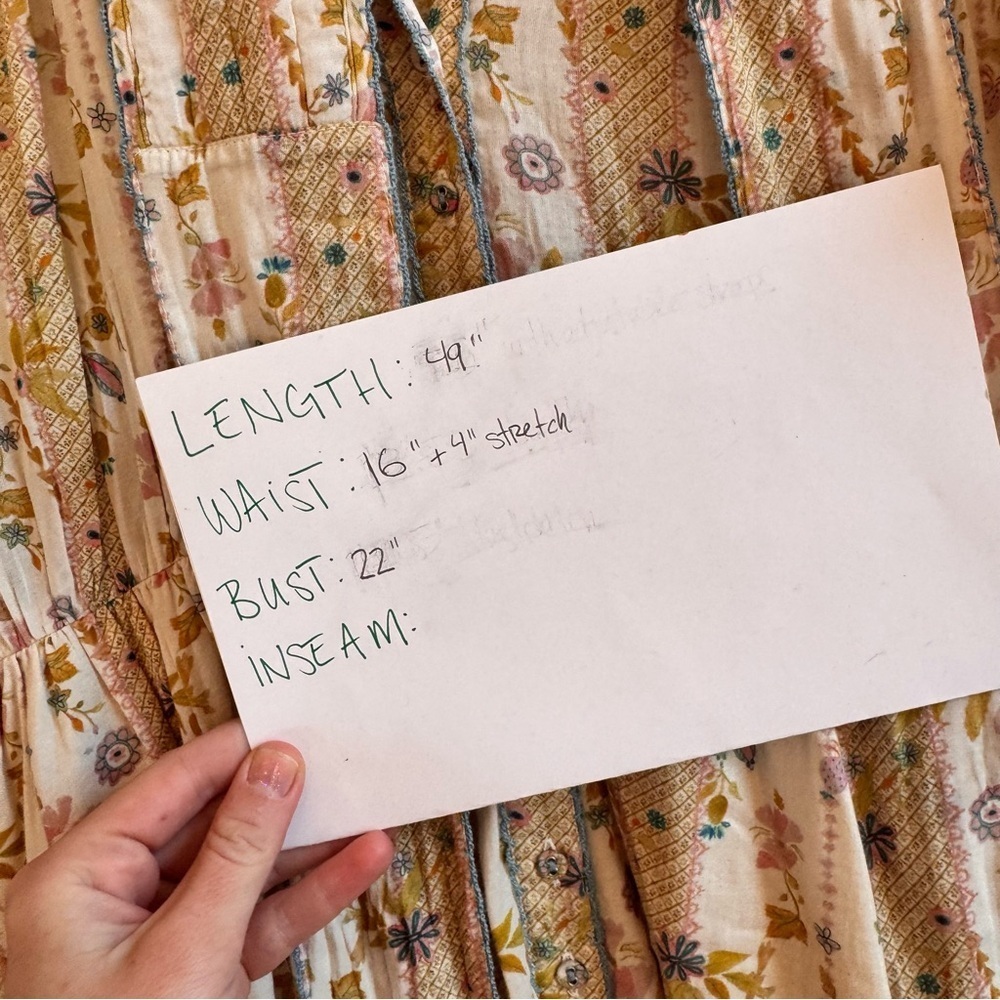 LENGTH: 49"
WAiST: 16" + 4" stretch
BUST: 22"
iNSEAM: